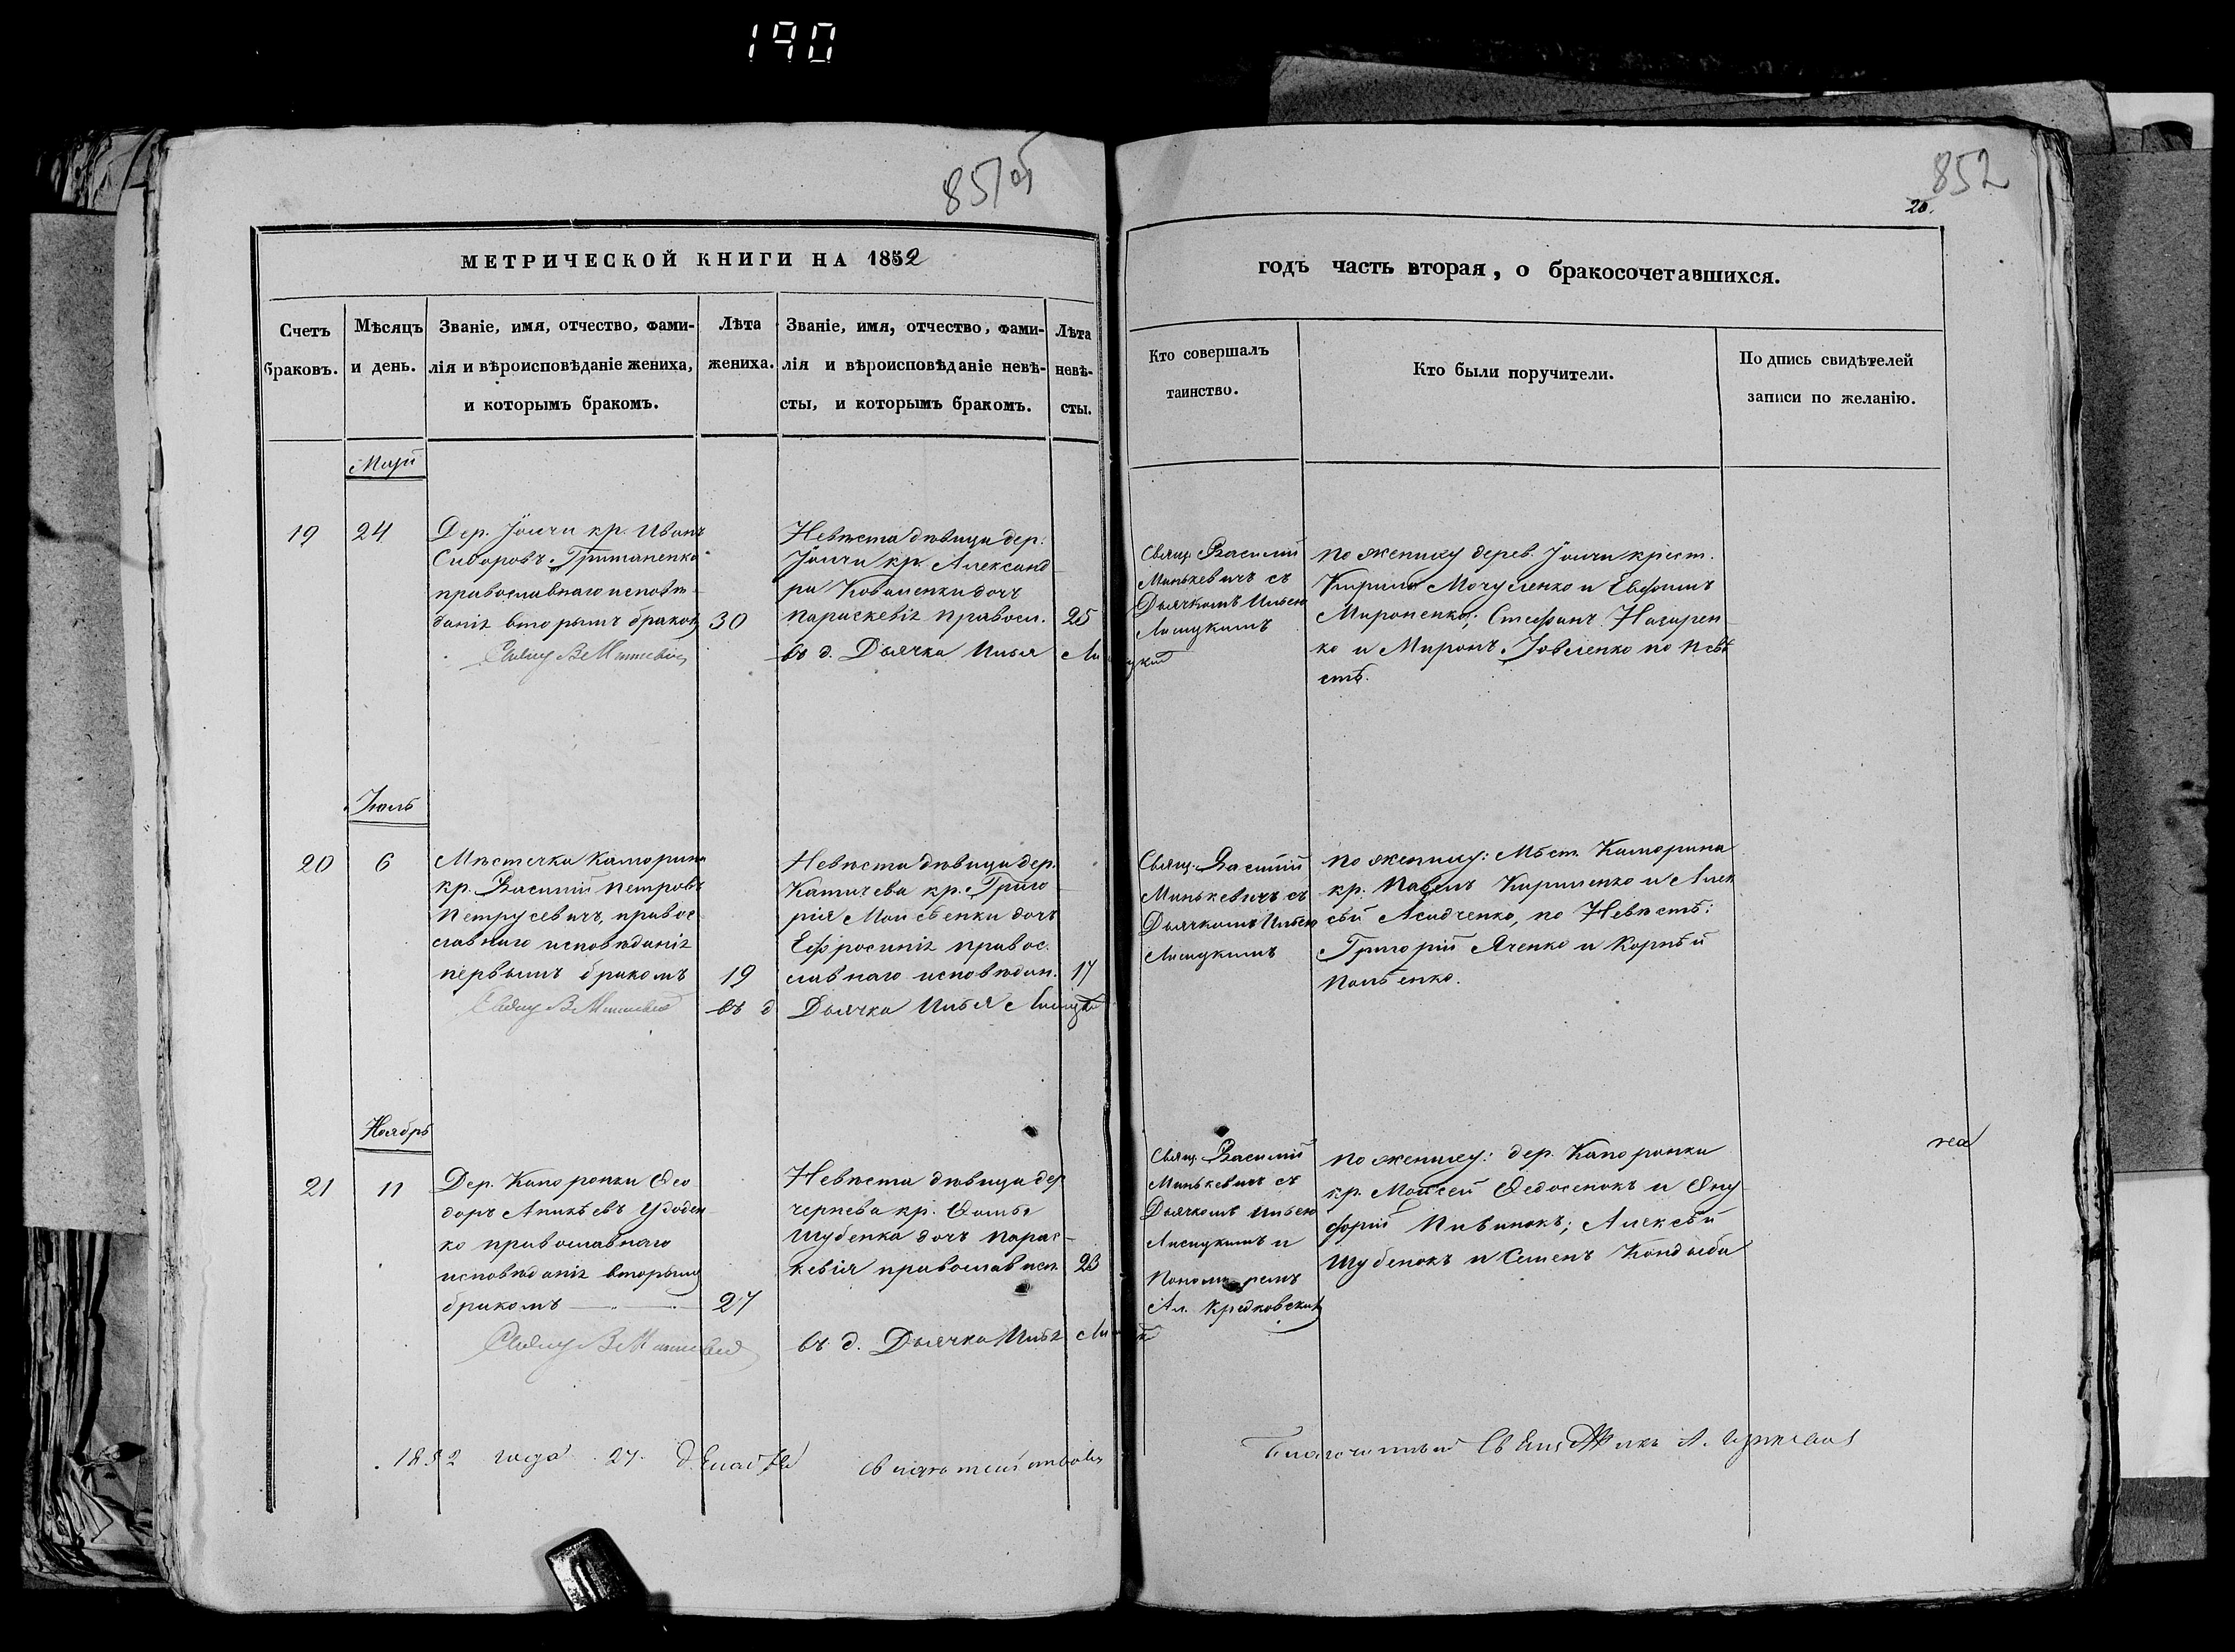 190
851об
852
20.
МЕТРИЧЕСКОЙ КНИГИ НА 1852
годъ часть вторая, о бракосочетавшихся.
Счетъ
браковъ.
Мѣсяцъ
и день.
Званіе, имя, отчество, фами-
лія и вѣроисповѣданіе жениха,
и которымъ бракомъ.
Лѣта
жениха.
Званіе, имя, отчество, фами-
лія и вѣроисповѣданіе невѣ-
сты, и которымъ бракомъ.
Лѣта
невѣ-
сты.
Кто совершалъ
таинство.
Кто были поручители.
Подпись свидѣтелей
записи по желанію.
Май
19
24
Дер. Іолчи кр. Иванъ
Сидоровъ
православнаго исповѣ-
даніе вторымъ бракомъ
30
Невѣста дѣвица дер.
Іолчи кр. Александ
ра Коваленки дочь
Параскевіе правосл.
25
Свящ. В Минкевичъ
въ д. Дьячка Илья Лисицкій
Свящ. Василій
Минькевичъ съ
Дьячкомъ Ильею
Лисицкимъ
По жениху дерев. Іолчи крест.
Кирилъ и Евфимъ
Мироненко; Стефанъ Назарен
ко и Миронъ Іовленко по невѣ
стѣ.
Іюль
20
6
Мѣстечка Каморина
кр. Василій Петровъ
Петрусевичъ, правос
славнаго исповѣданіе
первымъ бракомъ
19
Невѣста дѣвица дер.
Катичева кр. Григо
рія Моисѣенки дочь
Ефросиніе правос.
славнаго исповѣдан.
17
Свящ В Минкевичъ
въ д Дьячка Илья Лисицкій
Свящ. Василій
Минькевичъ съ
Дьячкомъ Ильею
Лисицкимъ
По жениху: Мѣст. Каморина
кр. Павелъ Кириленко и Алек
сѣй по Невѣстѣ:
Григорій Яченко и Корнѣй
Ноябрь
21
11
Дер. Капоронки Ѳео
доръ Аникѣевъ Удоден
ко православнаго
исповѣданіе вторымъ
бракомъ
27
Невѣста дѣвица дер
чернева кр. Ѳомы
Шубенка дочь Парас-
кевія православ исп.
23
Свящ В Минкевичъ
въ д. Дьячка Илья Лисицк
Свящ. Василій
Минькевичъ съ
Дьячкомъ Ильею
Лисицкимъ и
Пономаремъ
Ал.
По жениху: дер. Капоронки
кр. Моисей Ѳедосенокъ и Ону
форій Пивинокъ; Алексѣй
Шубенокъ и Семенъ Кондыба
1852 года 27 Декабря свидѣтельствовалъ
Благочинный Священникъ